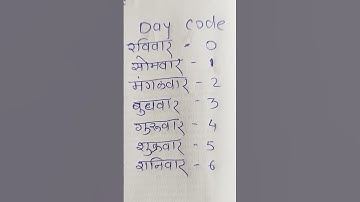 Day code
रविवार - 0
सोमवार - 1
मंगळवार - 2
बुधवार - 3
गुरुवार - 4
शुक्रवार - 5
शनिवार - 6